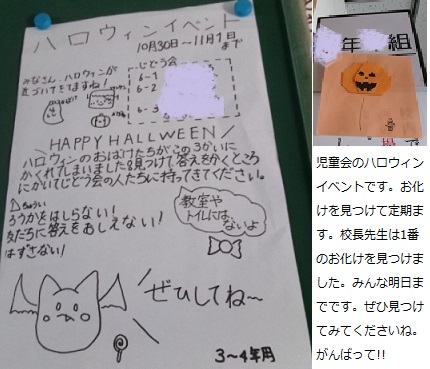 ハロウィンイベント
10月30日〜11月1日まで
みなさん、ハロウィンが
近づいてきてますね!
じどう会
6-1
6-2
6-3
HAPPY HALLWEEN
ハロウィンのおばけたちがこの3がいに
かくれてしまいました。見つけて答えをかくところ
にかいてじどう会の人たちに持ってきてください。
ちゅうい
ろうかをはしらない!
友だちに答えをおしえない!
はずさない!
教室や
トイレには、
ないよ
ぜひしてね〜
3〜4年用
年 組
児童会のハロウィン
イベントです。お化
けを見つけて定期ま
す。校長先生は1番
のお化けを見つけま
した。みんな明日ま
でです。ぜひ見つけ
てみてくださいね。
がんばって!!